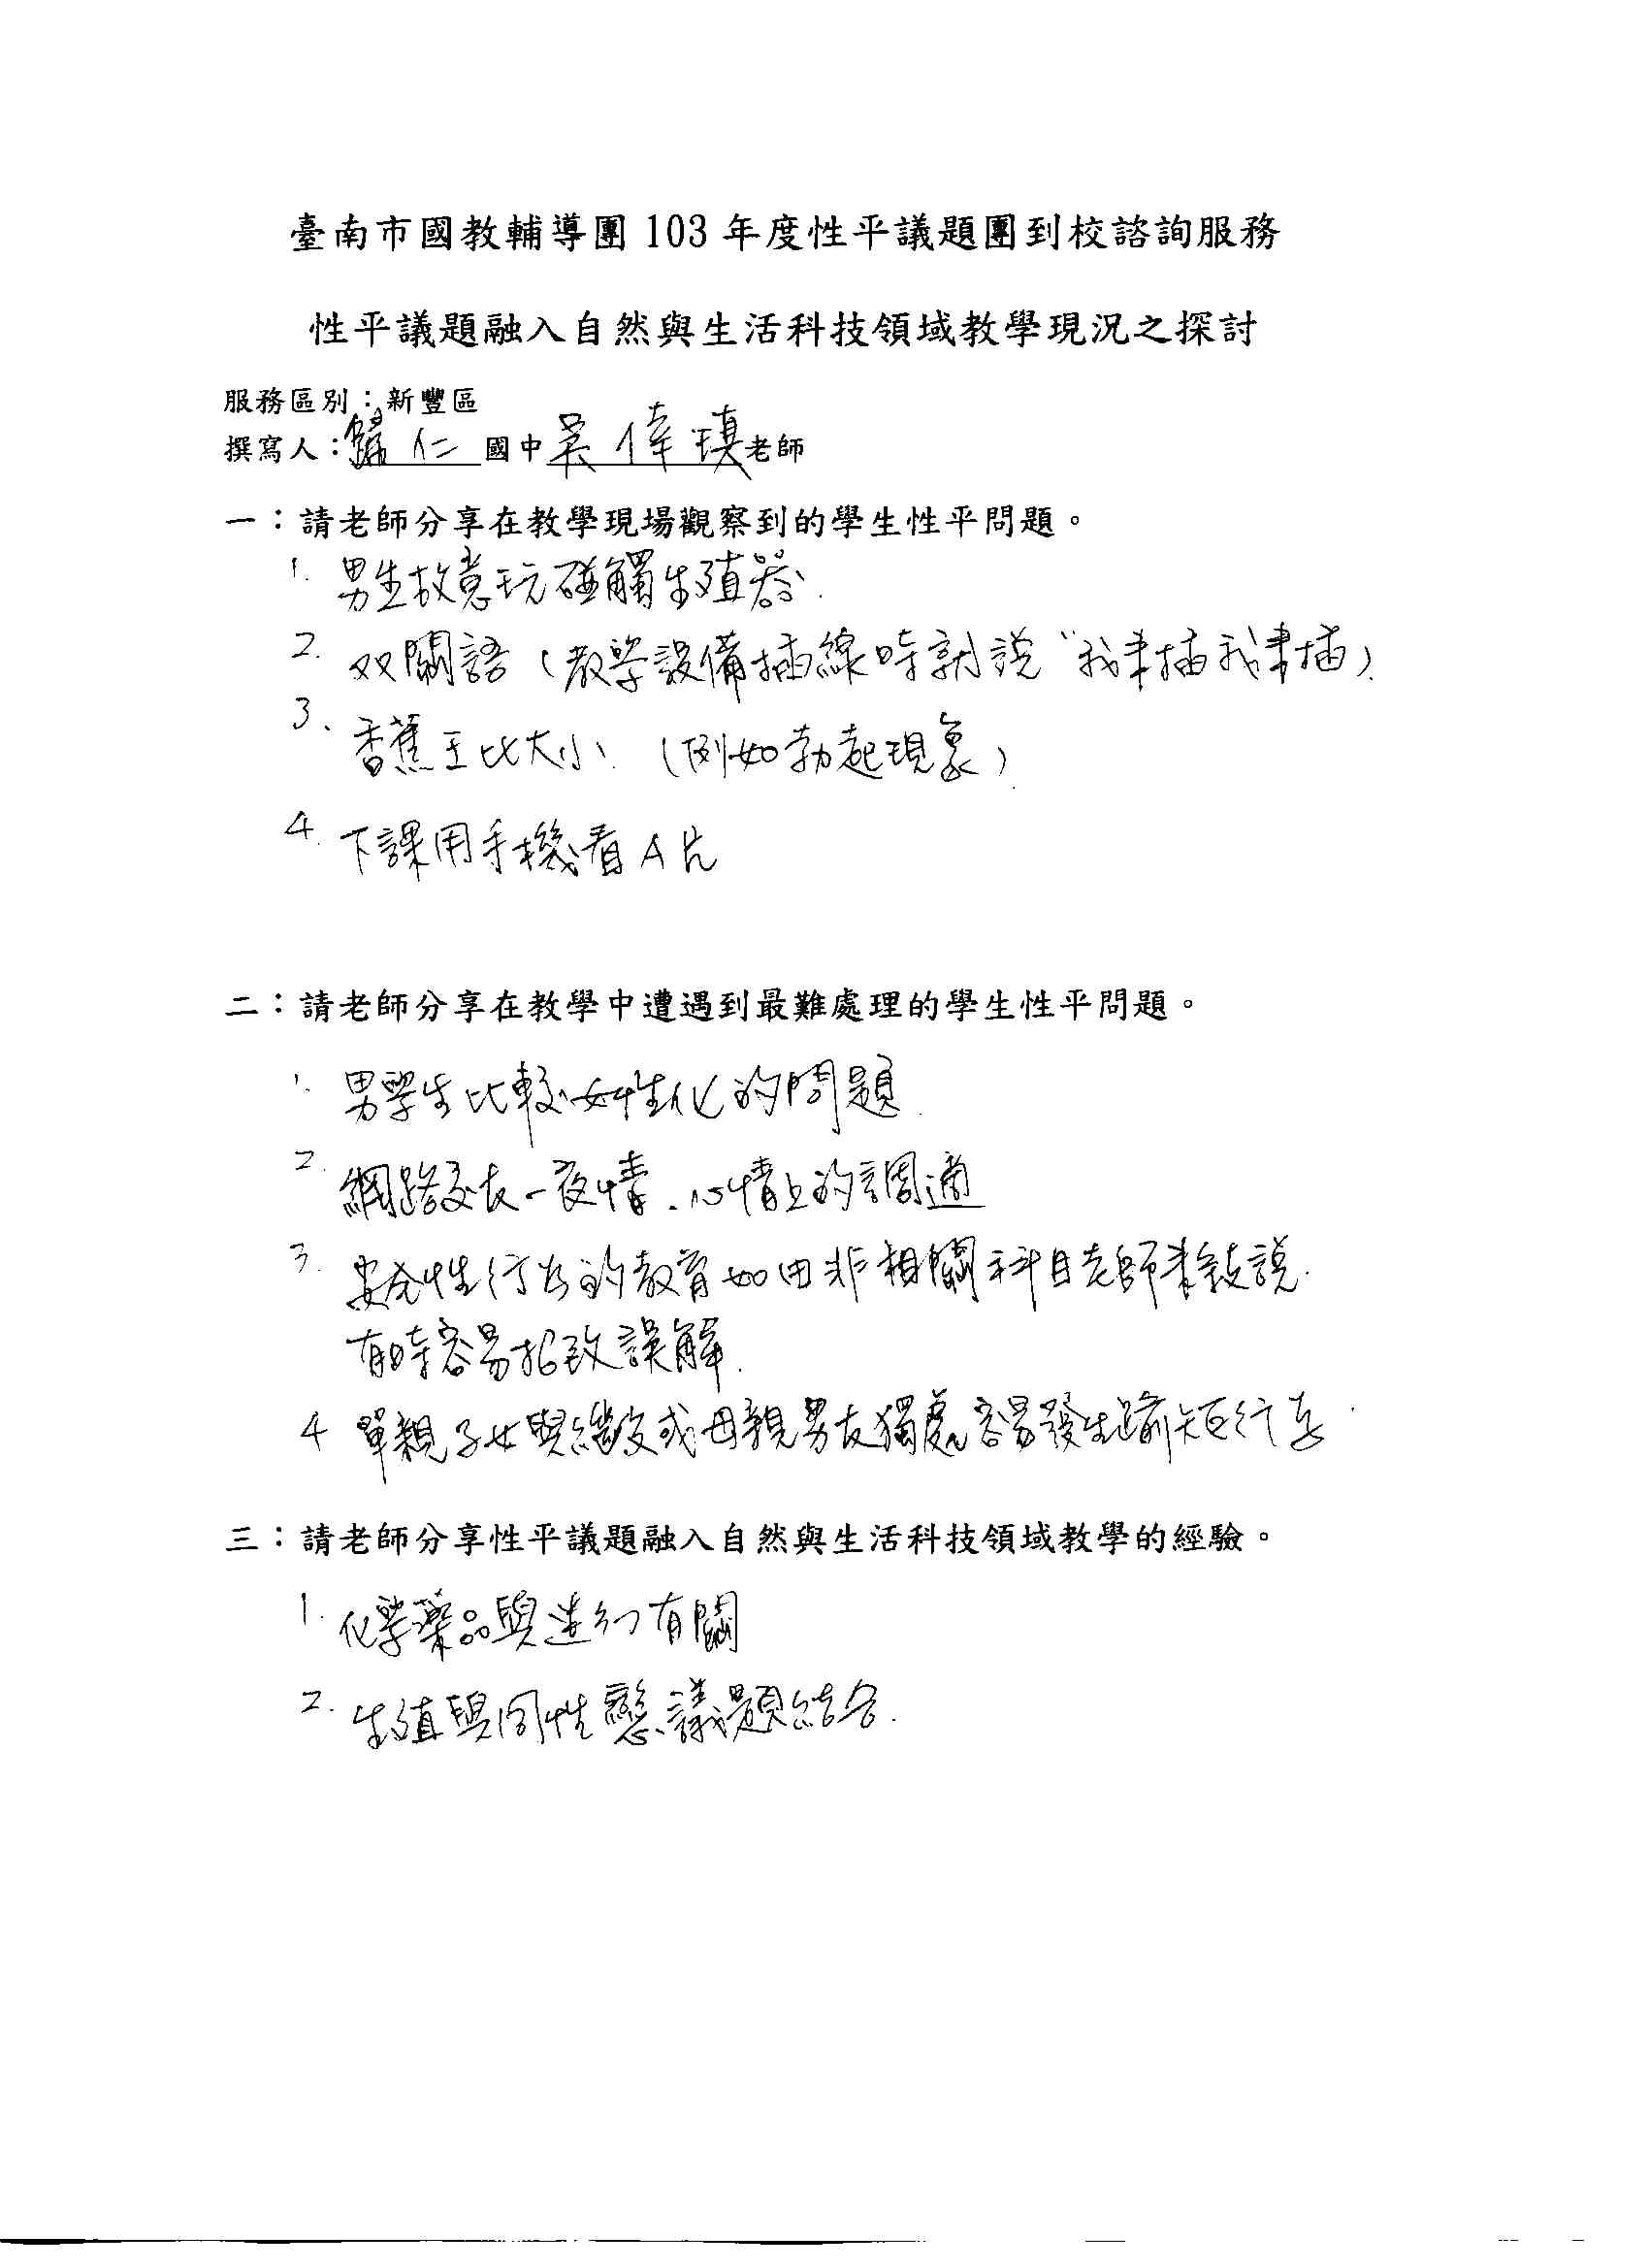 臺南市國教輔導團 103 年度性平議題團到校諮詢服務
性平議題融入自然與生活科技領域教學現況之探討
服務區別：新豐區
撰寫人：歸仁國中吳偉瑱老師
一：請老師分享在教學現場觀察到的學生性平問題。
1. 男生故意玩碰觸生殖器.
2. 双關語（教學設備插線時就說“我來插我來插）.
3. 香蕉王比大小.（例如勃起現象）.
4. 下課用手機看A片
二：請老師分享在教學中遭遇到最難處理的學生性平問題。
1. 男學生比較女性化的問題.
2. 網路交友一夜情.心情上的調適
3. 安全性行為的教育如由非相關科目老師來敍說.
有時容易招致誤解.
4 單親子女與繼父或母親男友獨處容易發生踰矩行為.
三：請老師分享性平議題融入自然與生活科技領域教學的經驗。
1. 化學藥品與迷幻有關
2. 生殖與同性戀議題結合.